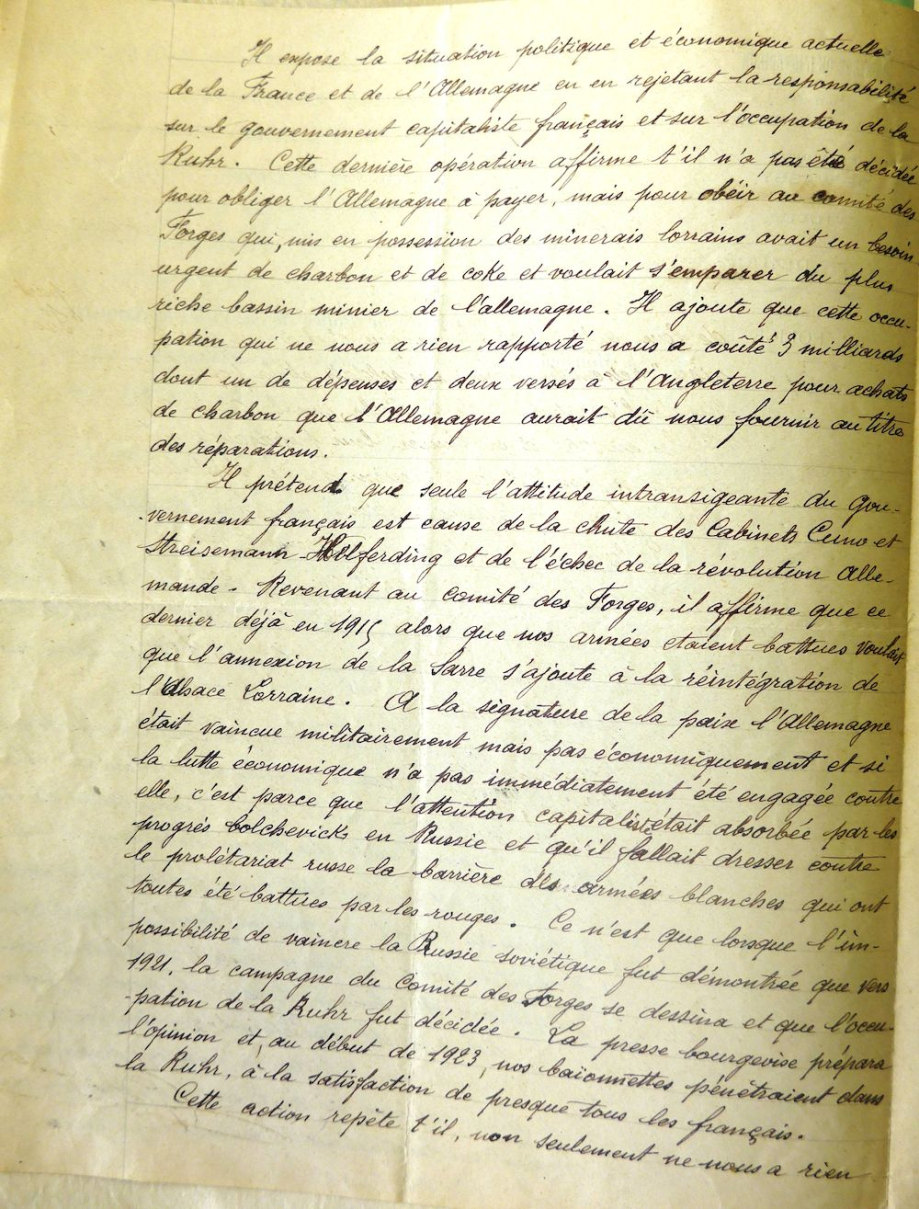 Il expose la situation politique et économique actuelle
de la France et de l'Allemagne en en rejetant la responsabilité
sur le gouvernement capitaliste français et sur l'occupation de la
Ruhr. Cette dernière opération affirme t'il n'a pas été décidée
pour obliger l'Allemagne à payer, mais pour obéir au comité des
Forges qui, mis en possession des minerais lorrains avait un besoin
urgent de charbon et de coke et voulait s'emparer du plus
riche bassin minier de l'allemagne. Il ajoute que cette occu-
pation qui ne nous a rien rapporté nous a coûté 3 milliards
dont un de dépenses et deux versés à l'Angleterre pour achats
de charbon que l'Allemagne aurait dû nous fournir au titre
des réparations.
Il prétend que seule l'attitude intransigeante du gou-
-vernement français est cause de la chute des Cabinets Cuno et
Streisemann-Hilferding et de l'échec de la révolution Alle-
mande - Revenant au comité des Forges, il affirme que ce
dernier déjà en 1915 alors que nos armées etaient battues voulait
que l'annexion de la Sarre s'ajoute à la réintégration de
l'Alsace Lorraine. A la signature de la paix l'Allemagne
était vaincue militairement mais pas économiquement et si
la lutte économique n'a pas immédiatement été engagée contre
elle, c'est parce que l'attention capitaliste était absorbée par les
progrés bolchevicks en Russie et qu'il fallait dresser contre
le prolétariat russe la barrière des armées blanches qui ont
toutes été battues par les rouges. Ce n'est que lorsque l'im-
possibilité de vaincre la Russie soviétique fut démontrée que vers
1921, la campagne du Comité des Forges se dessina et que l'occu-
-pation de la Ruhr fut décidée. La presse bourgeoise prépara
l'opinion et, au début de 1923, nos baïonnettes pénétraient dans
la Ruhr, à la satisfaction de presque tous les français.
Cette action repète t'il, non seulement ne nous a rien